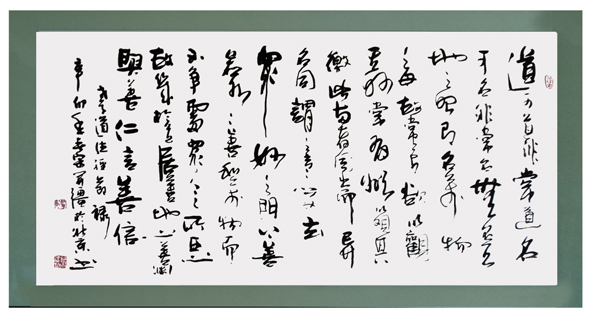 道可道非常道名
可名非常名無名天
地之始有名萬物
之母故常無欲以觀
其妙常有欲以觀其
徼此兩者同出而異
名同謂之玄玄之又玄
眾妙之門上善
若水水善利萬物而
不爭處眾人之所惡
故幾於道居善地心善淵
與善仁言善信
老子道德經節錄
辛卯年 於北京